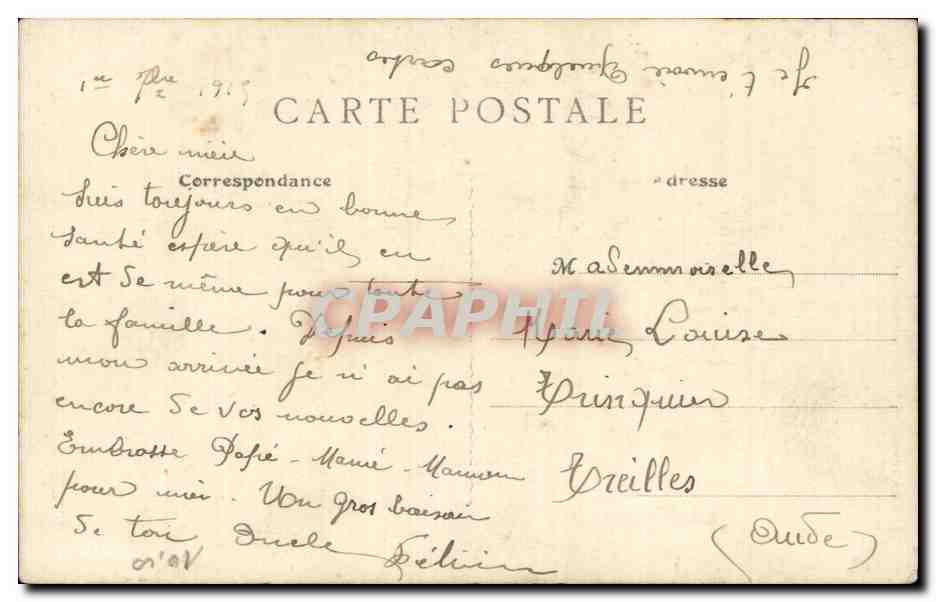 Je t'envoie quelques cartes
1er 1915
CARTE POSTALE
Chère
Correspondance
dresse
Suis toujours en bonne
santé espère qu'il en
est de même pour toute
la famille. Depuis
mon arrivée je n'ai pas
encore de vos nouvelles.
Embrasse Papé - Mamé - Maman
pour moi. Un gros baiser
de ton Oncle
Mademmoiselle
Marie Louise
Trinquier
Treilles
(Aude)
CPAPHIL